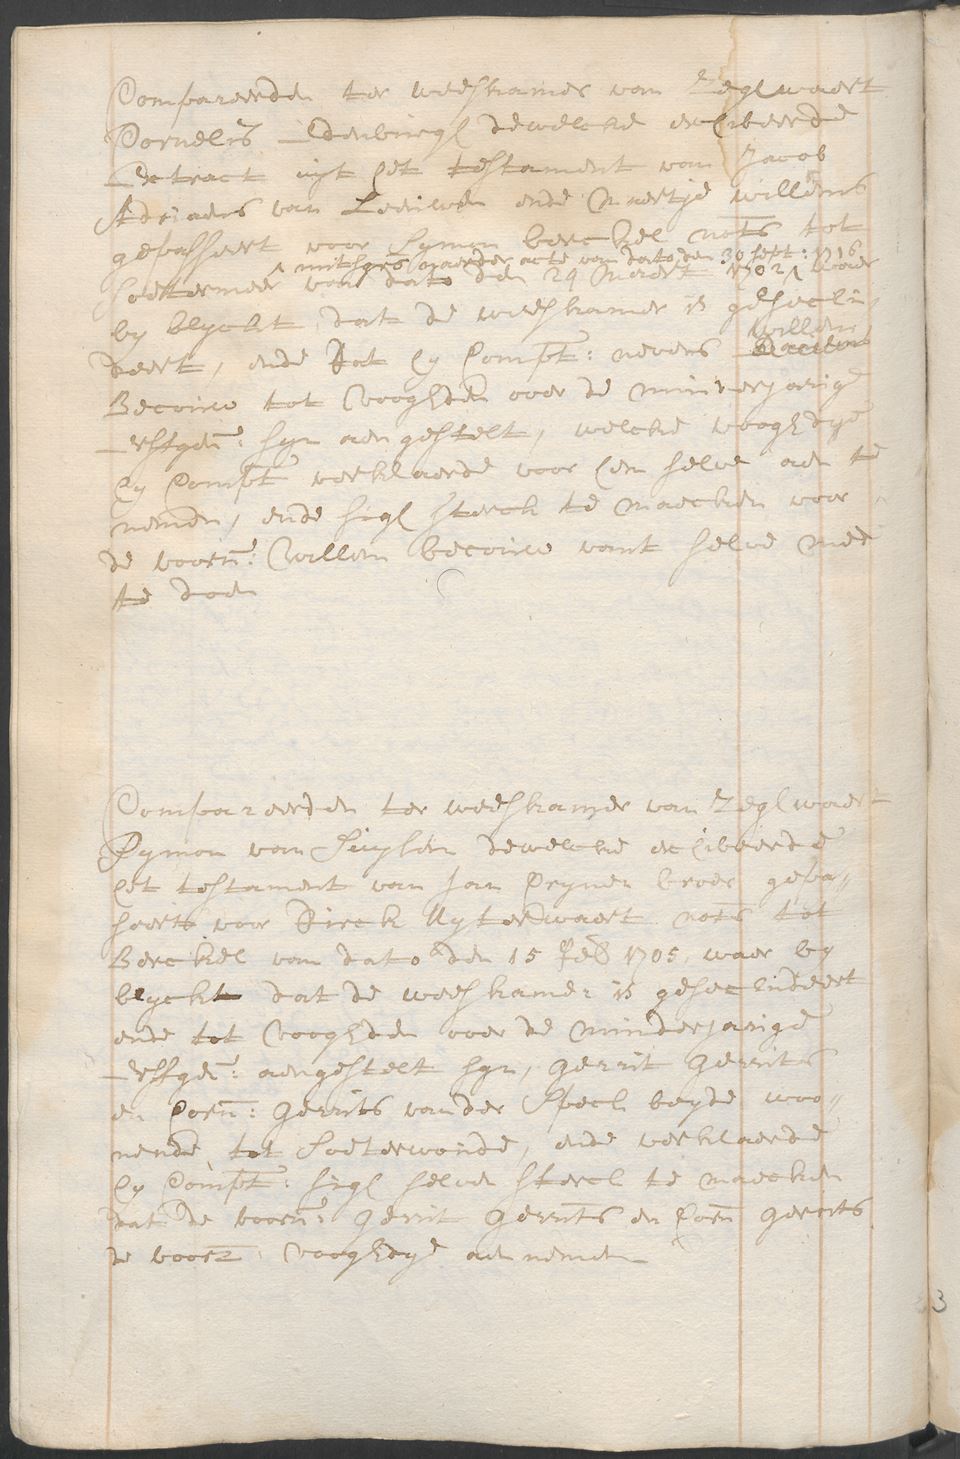 Compareerden ter weeskamer van Zegwaert
Cornelis Edenburgh dewelcke exhibeerde
Extract uyt het testament van Jacob
Adriaens van Leeuwen ende Maertje Willems
gepasseert voor Symon Berckel nots tot
^ mitsgrs naerder acte van dato den 30 sept: 1716
Soetermeer van dato den 24 Maert 1702 ^ waer
by blyckt, dat de weeskamer is geseclu,
Willem
deert, ende dat hy Compt: nevens
Becoiuw tot Vooghden over de minderjarige
Erffgen: syn aengestelt, welcke vooghdye
hy Compt verklaerde voor hem selve aen te
nemen, ende sigh sterck te maecken voor
de voorn: Willem becoiuw vant selve mede
te doen
Compareerden ter weeskamer van Zeghwaert
Symon van Suylen dewelcke exhibeerde
het testament van Jan Crynen broer gepa-
sseert voor Dirck Uyterwaert nots tot
Berckel van dato den 15 feb 1705, waer by
blyckt dat de weeskamer is gesecludeert
ende tot Vooghden over de minderjarige
Erffgen: aengestelt syn, Gerrit Gerrits
en Corn: Gerrits vander Speck beyde woo-
nende tot Soeterwoude, ende verklaerde
hy Compt: sigh selven sterck te maecken
dat de voorn: Gerrit Gerrits en Corn Gerrits
de voorz: Vooghdye aennemen
3